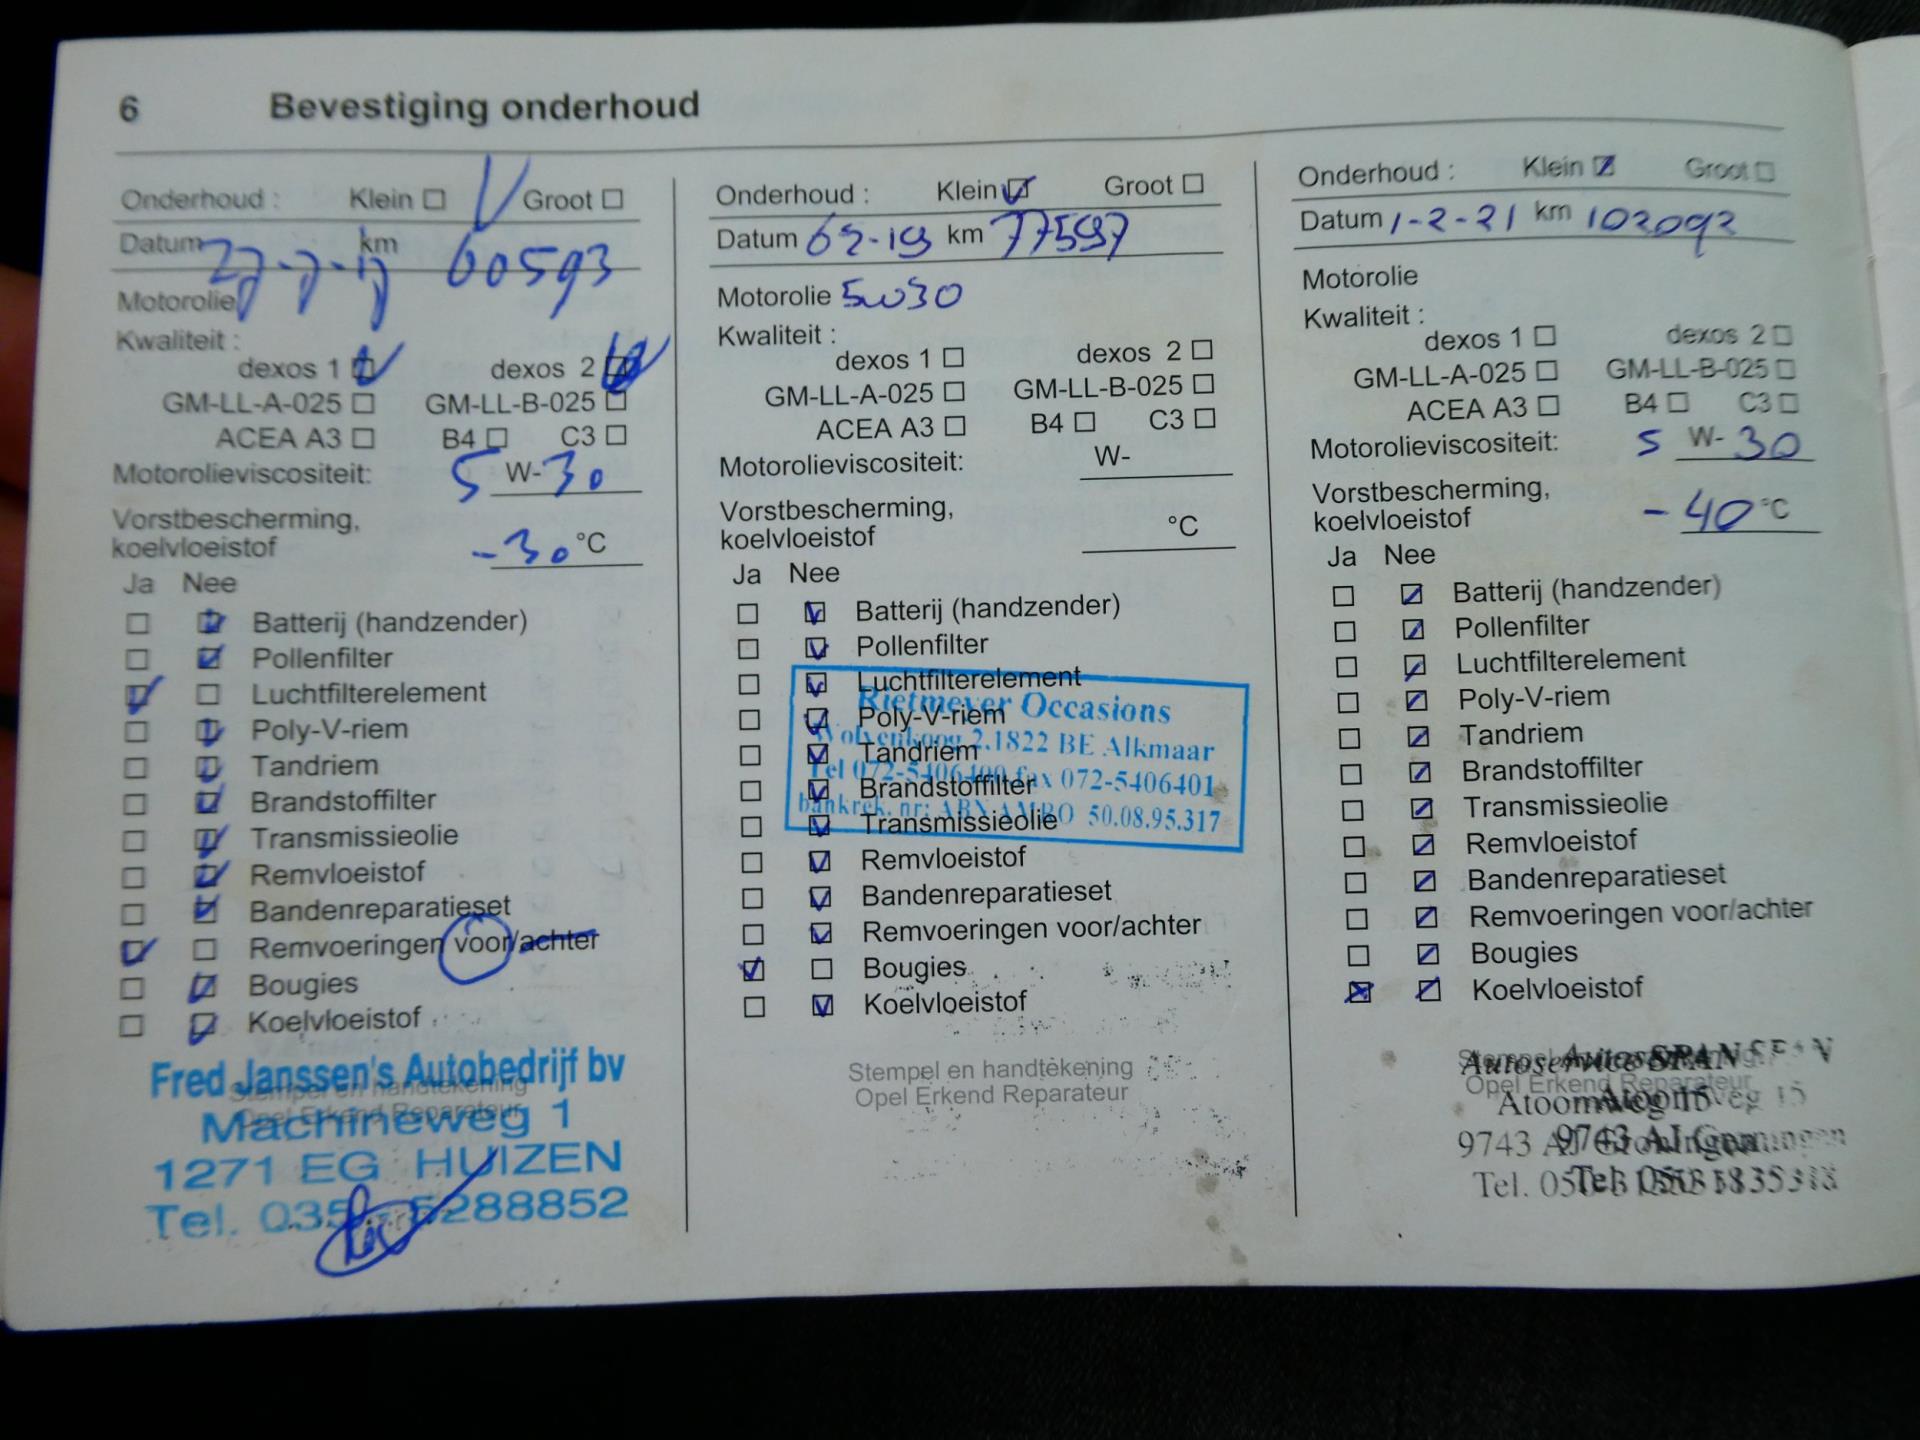 6 Bevestiging onderhoud
Onderhoud : Klein Groot
Datum 27-7-17 km 60593
Motorolie
Kwaliteit :
dexos 1 dexos 2
GM-LL-A-025 GM-LL-B-025
ACEA A3 B4 C3
Motorolieviscositeit: 5 W-30
Vorstbescherming,
koelvloeistof -30 °C
Ja Nee
Batterij (handzender)
Pollenfilter
Luchtfilterelement
Poly-V-riem
Tandriem
Brandstoffilter
Transmissieolie
Remvloeistof
Bandenreparatieset
Remvoeringen voor/achter
Bougies
Koelvloeistof
Stempel en handtekening
Opel Erkend Reparateur
Fred Janssen's Autobedrijf bv
Machineweg 1
1271 EG HUIZEN
Tel. 035 - 5288852
Onderhoud : Klein Groot
Datum 62-19 km 77597
Motorolie 5w30
Kwaliteit :
dexos 1 dexos 2
GM-LL-A-025 GM-LL-B-025
ACEA A3 B4 C3
Motorolieviscositeit: W-
Vorstbescherming,
koelvloeistof °C
Ja Nee
Batterij (handzender)
Pollenfilter
Luchtfilterelement
Poly-V-riem
Tandriem
Brandstoffilter
Transmissieolie
Remvloeistof
Bandenreparatieset
Remvoeringen voor/achter
Bougies
Koelvloeistof
Rietmeyer Occasions
Wolvenkoog 2.1822 BE Alkmaar
Tel 072-5406400 fax 072-5406401
bankrek. nr: ABN AMRO 50.08.95.317
Stempel en handtekening
Opel Erkend Reparateur
Onderhoud : Klein Groot
Datum 1-2-21 km 102092
Motorolie
Kwaliteit :
dexos 1 dexos 2
GM-LL-A-025 GM-LL-B-025
ACEA A3 B4 C3
Motorolieviscositeit: 5 W-30
Vorstbescherming,
koelvloeistof -40 °C
Ja Nee
Batterij (handzender)
Pollenfilter
Luchtfilterelement
Poly-V-riem
Tandriem
Brandstoffilter
Transmissieolie
Remvloeistof
Bandenreparatieset
Remvoeringen voor/achter
Bougies
Koelvloeistof
Stempel en handtekening
Opel Erkend Reparateur
Autoservice SPAN
Atoomweg 15
9743 AJ Groningen
Tel.